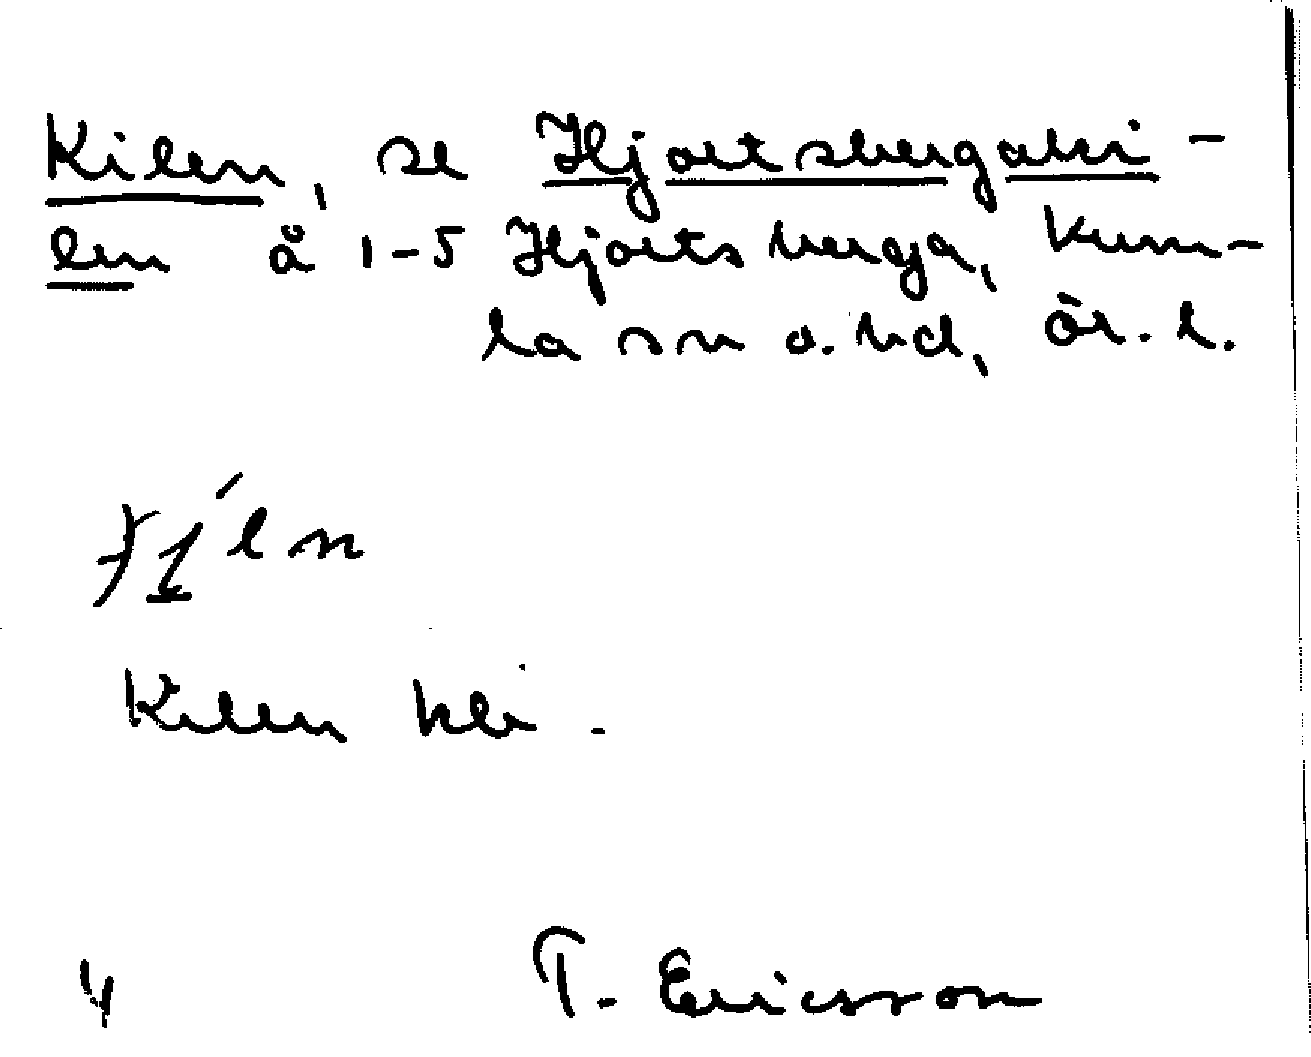 Kilen, se Hjortsbergaki-
len å 1-5 Hjortsberga, Kum-
la sn o. hd, ör. l.
Kilen
T. Ericsson